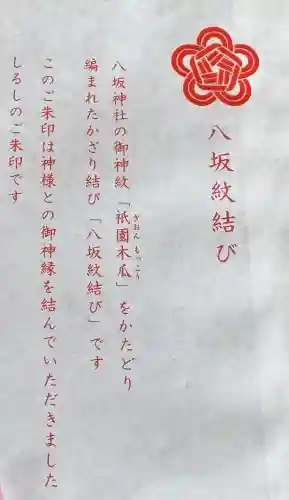 八坂紋結び
八坂神社の御神紋「祇園木瓜」をかたどり
ぎおん もっこう
編まれたかざり結び「八坂紋結び」です
このご朱印は神様との御神縁を結んでいただきました
しるしのご朱印です